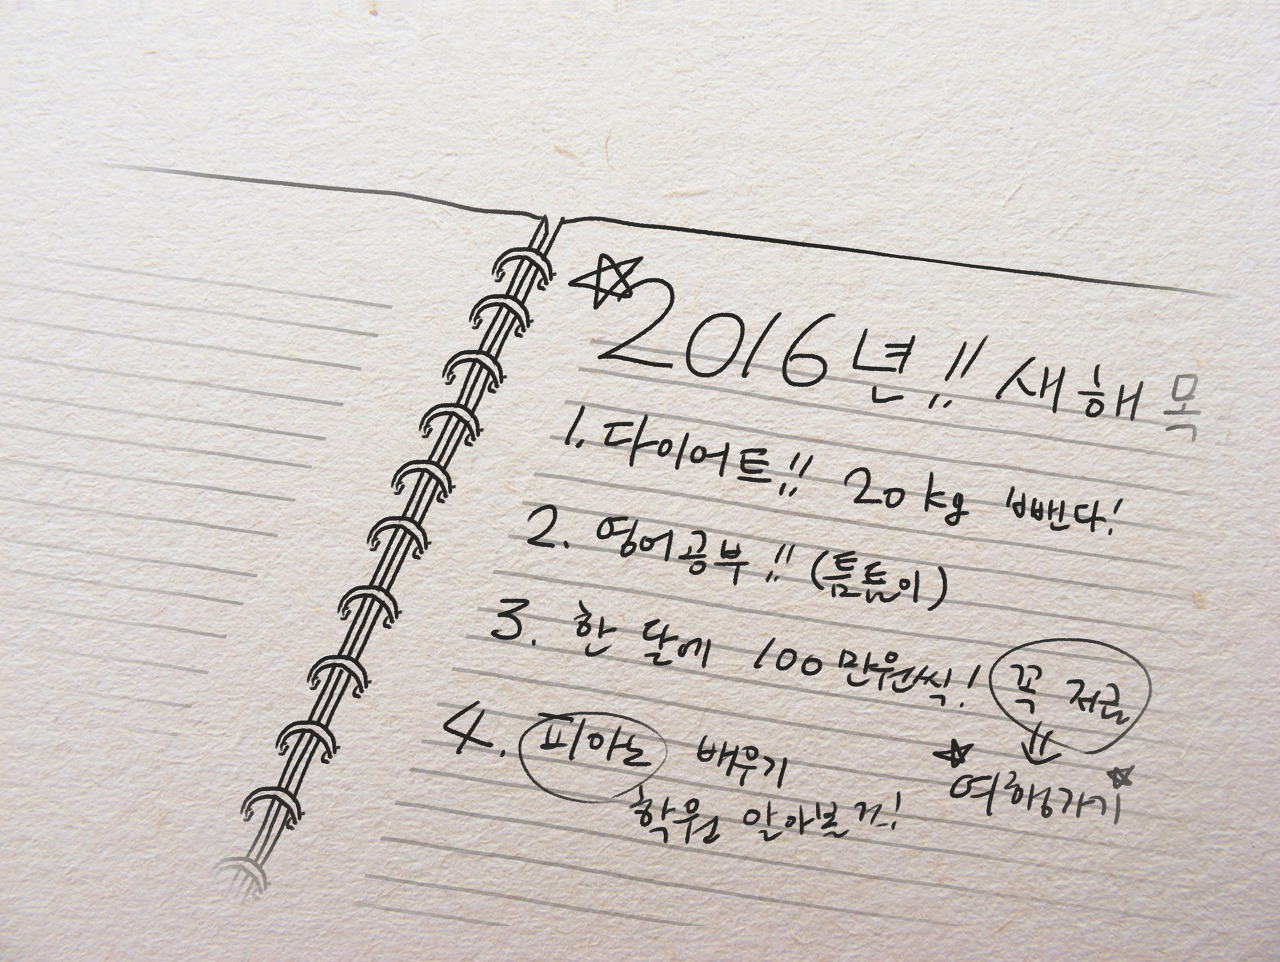 2016년!! 새해 목
1. 다이어트!! 20kg 뺀다!
2. 영어공부!! (틈틈이)
3. 한 달에 100만원씩! 꼭 저금
4. 피아노 배우기
☆여행가기☆
학원 알아볼 것!